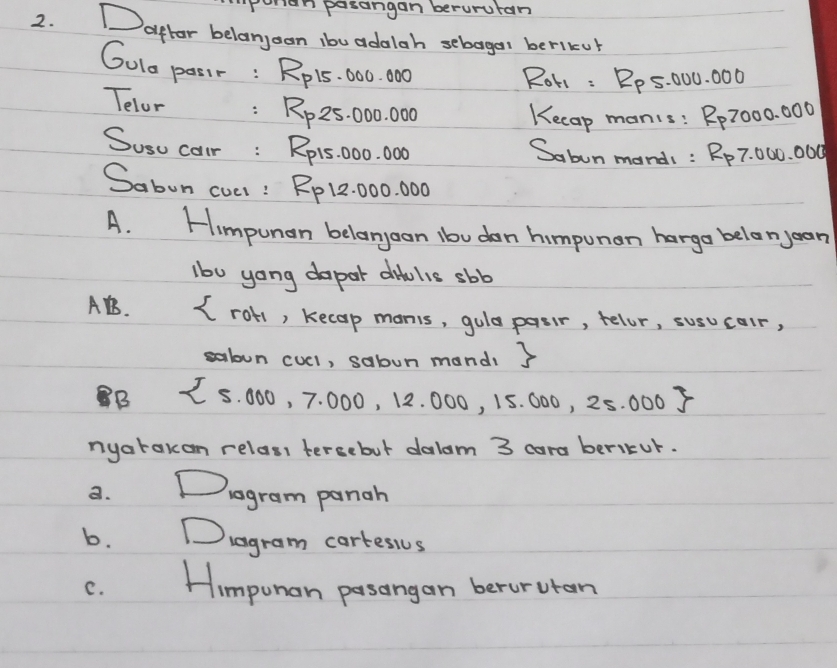 himpunan pasangan berurutan
2. Daftar belanjaan ibu adalah sebagai berikut
Gula pasir : Rp15.000.000 Roti : Rp5.000.000
Telur : Rp25.000.000 Kecap manis : Rp7000.000
Susu cair : Rp15.000.000 Sabun mandi : Rp7.000.000
Sabun cuci : Rp12.000.000
A. Himpunan belanjaan ibu dan himpunan harga belanjaan
ibu yang dapat ditulis sbb
A. { roti, kecap manis, gula pasir, telur, susu cair,
sabun cuci, sabun mandi }
B { 5.000, 7.000, 12.000, 15.000, 25.000 }
nyatakan relasi tersebut dalam 3 cara berikut.
a. Diagram panah
b. Diagram cartesius
c. Himpunan pasangan berurutan